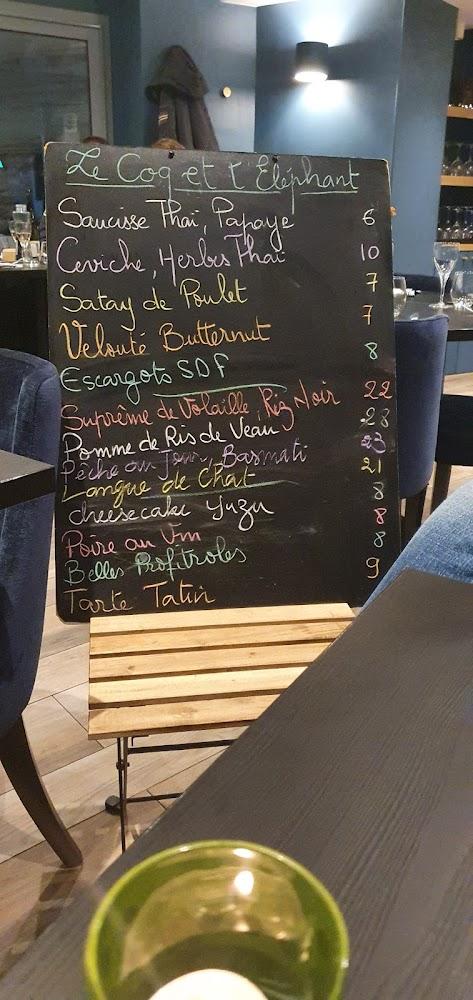 Le Coq et l'Eléphant
Saucisse Thaï, Papaye 6
Ceviche, Herbes Thaï 10
Satay de Poulet 7
Velouté Butternut 7
Escargots SDF 8
Suprême de Volaille, Riz Noir 22
Pomme de Ris de Veau 28
Pêche du Jour, Basmati 23
Langue de Chat 21
cheesecake yuzu 8
Poire au Vin 8
Belles Profitroles 8
Tarte Tatin 9